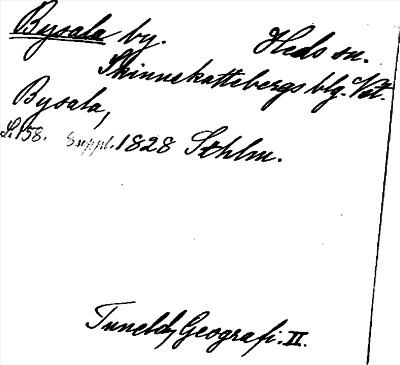 Bysala by. Heds sn.
Skinnskattebergs blg. Vst.
Bysala,
S. 158. Suppl. 1828 Sthlm.
Tuneld, Geografi. II.